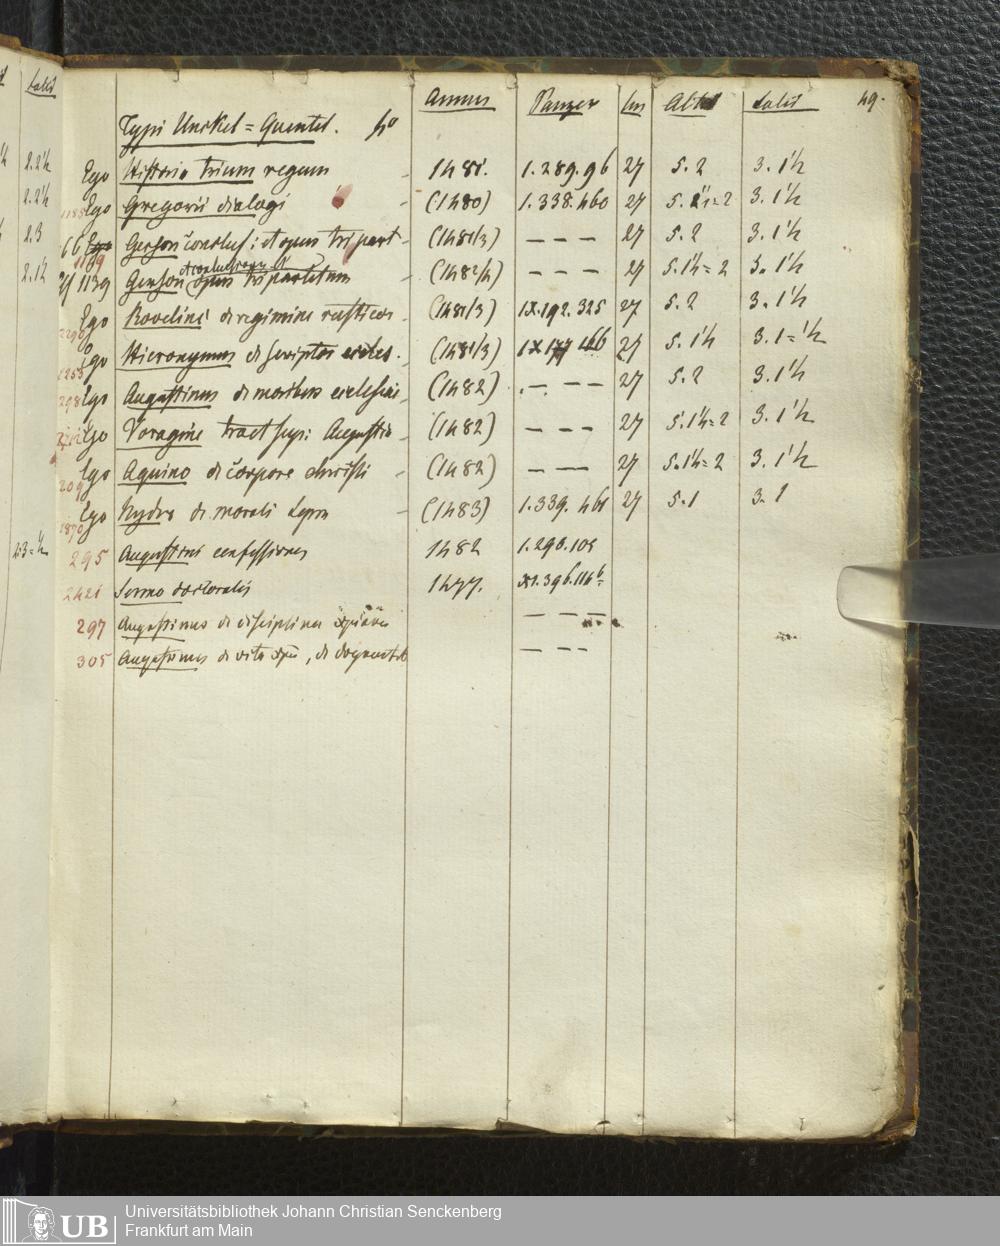 Annus Panzer lin Alt latit 49.
Typi Unckel=Quentel. 4o
Ego Historia trium regum – 1481. 1.289.96 27 5.2 3.1½
1185 Ego Gregorii dialogi – (1480) 1.338.460 27 5. 2 3.1½
66 Ego Gerson conclus: et opus tripart – (1481/3) – – – 27 5.2 3.1½
1139
1139 Gerson opus tripartitum – (1482/4) – – – 27 5.1½=2 3.1½
Ego Rovelini de regimine rusticor. – (1481/3) IX.192.325 27 5.2 3.1½
2290
Ego Hieronymus de scriptor eccles. – (1481/3) IX 177 166 27 5.1½ 3.1=½
1253
298 Ego Augustinus de moribus ecclesiae – (1482) – – 27 5.2 3.1½
Ego Voragine tract sup: Augustin – (1482) – – – 27 5.1½=2 3.1½
Ego Aquino de corpore christi – (1482) – – 27 5.1½=2 3.1½
209
Ego Nyder de morali lepra – (1483) 1.339.461 27 5.1 3.1
1870
295 Augustini confessiones 1482 1.290.105
2421 Sermo doctoralis 1477. XI.396.116b
297 Augustinus de disciplina xpiana – – –
305 Augustinus de vita xpi, de dogmatib – – –
2.2½
2.2½
2.3
2.1½
2.3=½
latit
UB Universitätsbibliothek Johann Christian Senckenberg
Frankfurt am Main